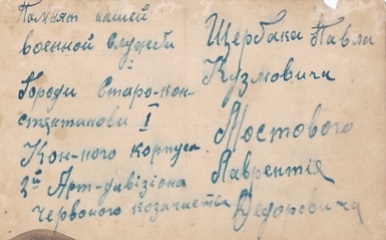 Помнят нашей
военной службы
Городи Старо-кон-
стянтинови I
Кон-ного корпуса
2й Арт-дивізіона
Червоного козачиства
Щербака Павла
Кузмовича
Мостового
Лаврентія
Федоровича